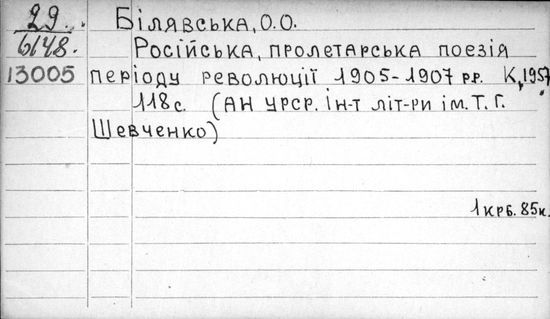 29. Білявська, О.О.
6148. Російська, пролетарська поезія
13005 періоду революції 1905-1907 р.р. К., 1957
118 с. (АН УРСР. ін-т літ-ри ім. Т. Г.
Шевченко)
1 крб. 85к.